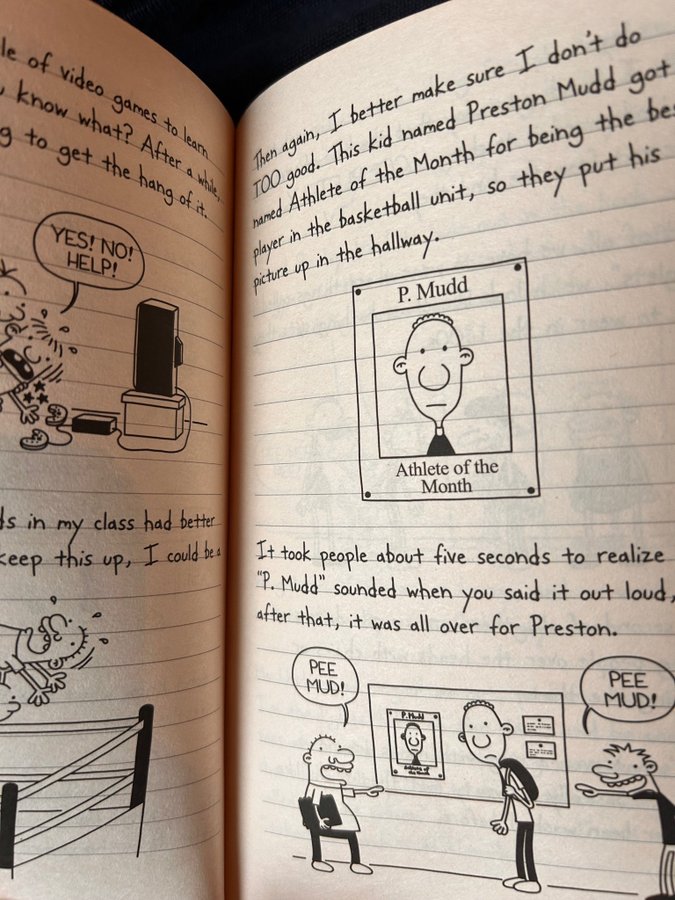 le of video games to learn
, know what? After a while,
g to get the hang of it.
YES! NO!
HELP!
ds in my class had better
keep this up, I could be a
Then again, I better make sure I don't do
TOO good. This kid named Preston Mudd got
named Athlete of the Month for being the bes
player in the basketball unit, so they put his
picture up in the hallway.
P. Mudd
Athlete of the
Month
It took people about five seconds to realize
"P. Mudd" sounded when you said it out loud,
after that, it was all over for Preston.
PEE
MUD!
P. Mudd
Athlete of
the Month
PEE
MUD!